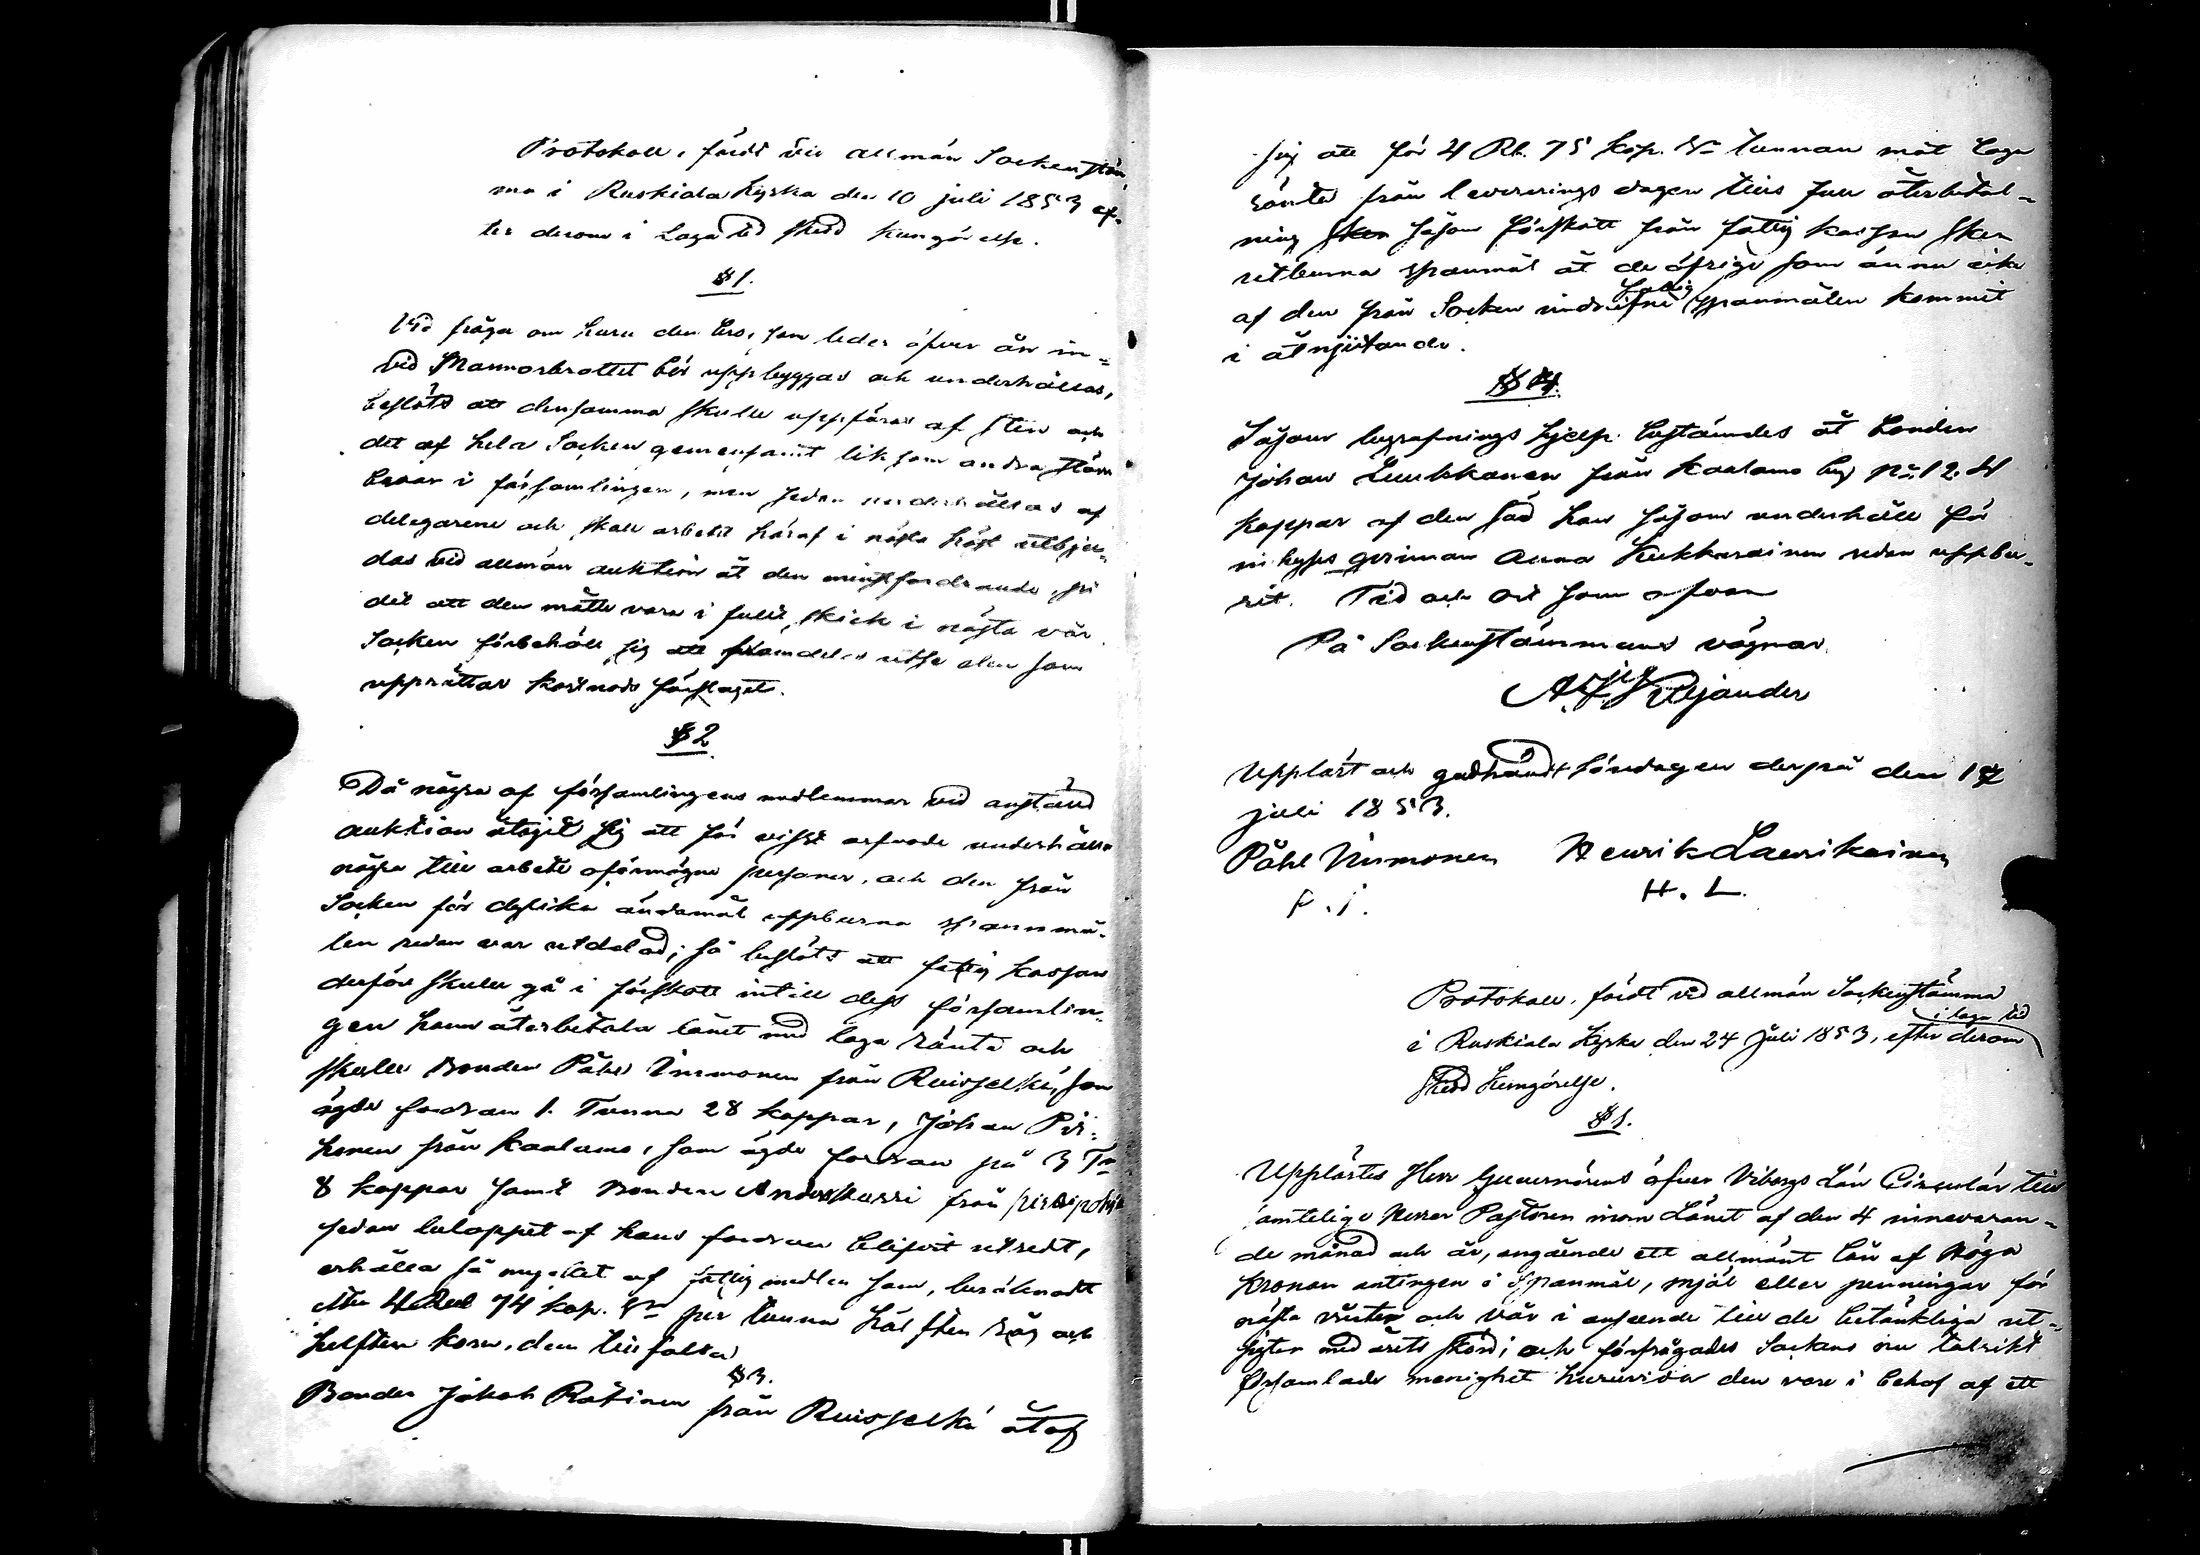 Protokoll, fördt vid allmän Sockenstäm,
ma i Ruskiala Kyrka den 10 juli 1853 ef-
ter derom i Laga tid skedd kungörelse.
§1.
Vid fråga om huru den bro, som leder öfver ån in-
vid Marmorbrottet bör uppbyggas och underhållas,
beslöts att densamma skulle uppföras af sten och
det af hela Socken gemensamt liksom andra större
broar i församlingen, men sedan underhållas af
delegarene och skall arbetet häraf i nästa höst utbju-
das vid allmän auktion åt den minstfordrande,
det att den måtte vara i fullt skick i nästa vår.
Socken förbehöll sig att framdeles utse den som
upprättar kostnads förslaget.
§2.
Då några af församlingens medlemmar vid anstäld
auktion åtagit sig att för visst arfvode underhålla
några till arbete oförmögna personer, och den från
Socken för dylika ändamål uppburna spannmå-
len redan var utdelad; så beslöts att fattig kassan
derför skulle gå i förskott intill dess församlin-
gen hann återbetala lånet med laga ränta och
skulle Bonden Påhl Immonen från Ruisselkä, som
ägde fordran 1. Tunna 28 kappar, Johan Pir-
honen från Kaalamo, som ägde fordran på 3 Tr
8 kappar samt Bonden Anders Karri från
sedan beloppet af hans fordran blifvit utredt,
erhålla så mycket af fattig medlen som, beräknadt
etter 4 Rbl 74 kop. Sr per tunna hälften råg och
helften korn, dem tillfalla
§3.
Bonden Jakob Ratinen från Ruisselkä åtog
sig att för 4 Rb. 75 kop. Sr tunnan mot laga
ränta från levererings dagen tills full återbetal-
ning såsom förskott från fattig kassan
utlemna spanmål åt de öfrige som ännu icke
af den från Socken indrifne fattig spanmålen kommit
i åtnjutande.
§4.
Såsom begrafnings hjelp bestämdes åt Bonden
Johan Luukkanen från Kaalamo by No 12. 4
kappar af den säd han såsom underhåll för
inhyses qvinnan Anna Kukkarainen redan uppbu-
rit. Tid och ort som ofvan
På Sockenstämmans vägnar
Uppläst och godkändt söndagen derpå den 17
juli 1853.
Påhl Immonen Henrik Laurikainen
P. I. H. L.
Protokoll, fördt vid allmän Sockenstämma
i Ruskiala Kyrka den 24 Juli 1853, efter derom i laga tid
skedd Kungörelse.
§1.
Upplästes Herr Guvernörens öfver Viborgs Län Circulär till
samtelige Herrar Pastorer inom Länet af den 4 innevaran-
de månad och år, angående ett allmänt lån af Höga
Kronan antingen i Spanmål, mjöl eller penningar för
nästa vinter och vår i anseende till de betänkliga ut-
sigter med årets skörd; och förfrågades Sockens nu talrikt
församlade menighet huruvida den vore i behof af ett